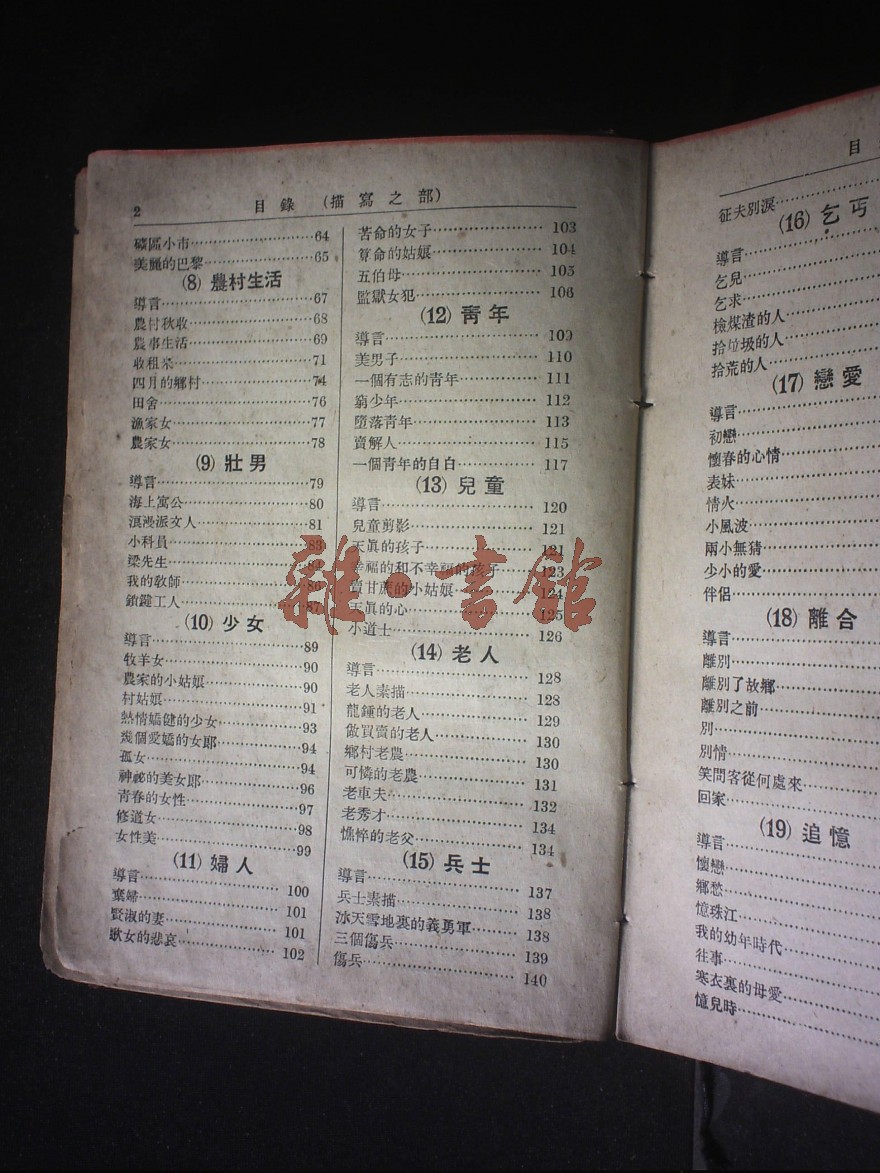 2
目錄 (描寫之部)
礦區小市 64
美麗的巴黎 65
(8) 農村生活
導言 67
農村秋收 68
農事生活 69
收租米 71
四月的鄉村 74
田舍 76
漁家女 77
農家女 78
(9) 壯男
導言 79
海上寓公 80
浪漫派文人 81
小科員 83
梁先生 84
我的敎師 86
鎖鏈工人 87
(10) 少女
導言 89
牧羊女 90
農家的小姑娘 90
村姑娘 91
熱情嬌健的少女 93
幾個愛嬌的女郞 94
孤女 94
神祕的美女郞 96
靑春的女性 97
修道女 98
女性美 99
(11) 婦人
導言 100
棄婦 101
賢淑的妻 101
歌女的悲哀 102
苦命的女子 103
算命的姑娘 104
五伯母 105
監獄女犯 106
(12) 靑年
導言 109
美男子 110
一個有志的靑年 111
窮少年 112
墮落靑年 113
賣解人 115
一個靑年的自白 117
(13) 兒童
導言 120
兒童剪影 121
天眞的孩子 121
幸福的和不幸福的孩子 123
賣甘蔗的小姑娘 124
天眞的心 125
小道士 126
(14) 老人
導言 128
老人素描 128
龍鍾的老人 129
做買賣的老人 130
鄉村老農 130
可憐的老農 131
老車夫 132
老秀才 134
憔悴的老父 134
(15) 兵士
導言 137
兵士素描 138
冰天雪地裏的義勇軍 138
三個傷兵 139
傷兵 140
目
征夫別淚
(16) 乞丐
導言
乞兒
乞求
檢煤渣的人
拾垃圾的人
拾荒的人
(17) 戀愛
導言
初戀
懷春的心情
表妹
情火
小風波
兩小無猜
少小的愛
伴侶
(18) 離合
導言
離別
離別了故鄕
離別之前
別
別情
笑問客從何處來
回家
(19) 追憶
導言
懷戀
鄕愁
憶珠江
我的幼年時代
往事
寒衣裏的母愛
憶兒時
雜·書館